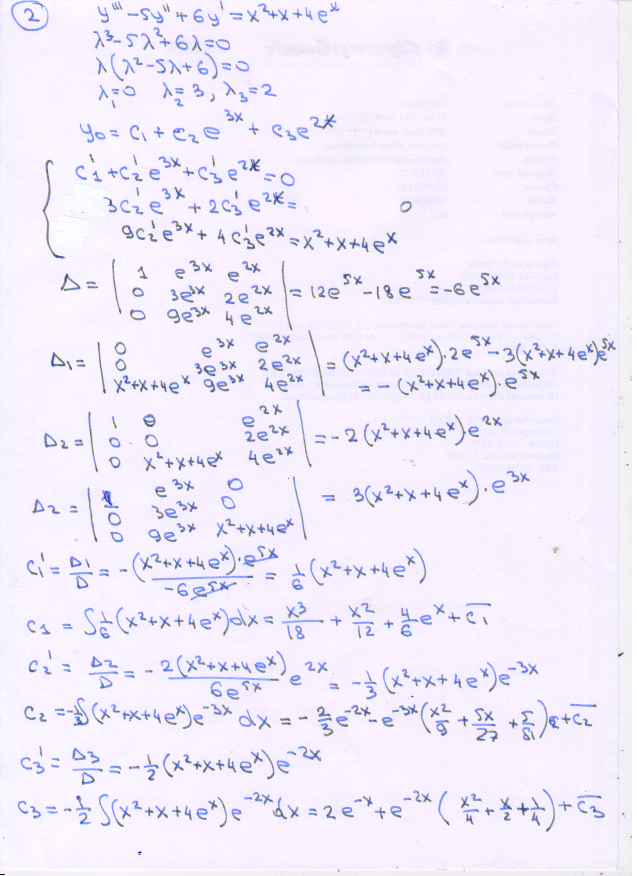 2) y''' - 5y'' + 6y' = x² + x + 4eˣ
λ³ - 5λ² + 6λ = 0
λ(λ² - 5λ + 6) = 0
λ₁ = 0 λ₂ = 3, λ₃ = 2
y₀ = c₁ + c₂e³ˣ + c₃e²ˣ
{ c₁' + c₂'e³ˣ + c₃'e²ˣ = 0
3c₂'e³ˣ + 2c₃'e²ˣ = 0
9c₂'e³ˣ + 4c₃'e²ˣ = x² + x + 4eˣ
Δ = | 1 e³ˣ e²ˣ ; 0 3e³ˣ 2e²ˣ ; 0 9e³ˣ 4e²ˣ | = 12e⁵ˣ - 18e⁵ˣ = -6e⁵ˣ
Δ₁ = | 0 e³ˣ e²ˣ ; 0 3e³ˣ 2e²ˣ ; x²+x+4eˣ 9e³ˣ 4e²ˣ | = (x²+x+4eˣ)·2e⁵ˣ - 3(x²+x+4eˣ)e⁵ˣ
= -(x²+x+4eˣ)·e⁵ˣ
Δ₂ = | 1 0 e²ˣ ; 0 0 2e²ˣ ; 0 x²+x+4eˣ 4e²ˣ | = -2(x²+x+4eˣ)e²ˣ
Δ₂ = | 1 e³ˣ 0 ; 0 3e³ˣ 0 ; 0 9e³ˣ x²+x+4eˣ | = 3(x²+x+4eˣ)·e³ˣ
c₁' = Δ₁/Δ = -(x²+x+4eˣ)·e⁵ˣ/(-6e⁵ˣ) = 1/6 (x²+x+4eˣ)
c₁ = ∫1/6(x²+x+4eˣ)dx = x³/18 + x²/12 + 4/6 eˣ + c̅₁
c₂' = Δ₂/Δ = - 2(x²+x+4eˣ)/(6e⁵ˣ) e²ˣ = -1/3 (x²+x+4eˣ)e⁻³ˣ
c₂ = -1/3∫(x²+x+4eˣ)e⁻³ˣ dx = -2/3 e⁻²ˣ - e⁻³ˣ(x²/9 + 5x/27 + 5/81) + c̅₂
c₃' = Δ₃/Δ = -1/2 (x²+x+4eˣ)e⁻²ˣ
c₃ = -1/2 ∫(x²+x+4eˣ)e⁻²ˣ dx = 2e⁻ˣ + e⁻²ˣ (x²/4 + x/2 + 1/4) + c̅₃